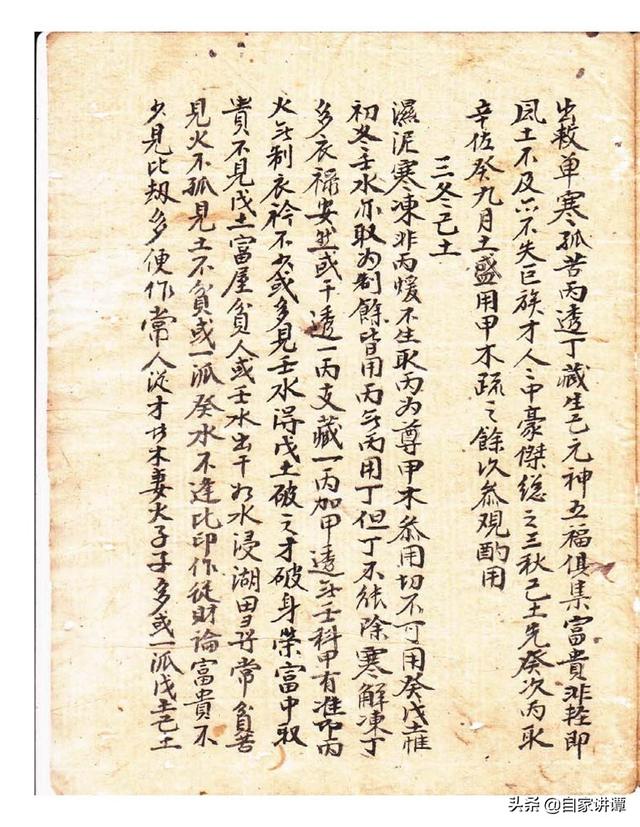 出救单寒孤苦丙透丁藏生己元神五福俱集富貴非轻即
风土不及六不失巨族才人之中豪傑総之三秋己土先癸次丙取
辛佐癸九月土盛用甲木疏之餘以叅观酌用
三冬己土
濕泥寒凍非丙煖不生取丙为尊甲木叅用切不可用癸戊土惟
初冬壬水亦取为制餘皆用丙无丙用丁但丁不能除寒解凍丁
多衣禄安然或干透一丙支藏一丙加甲透无壬科甲有准即丙
火无制衣衿不少或多見壬水得戊土破之才破身荣富中取
貴不見戊土富屋貧人或壬水出干为水浸湖田寻常貧苦
見火不孤見土不貧或一派癸水不逢比印作從財論富貴不
少見比劫多便作常人從才以木妻火子子多或一派戊土己土
头条 @自家讲谭